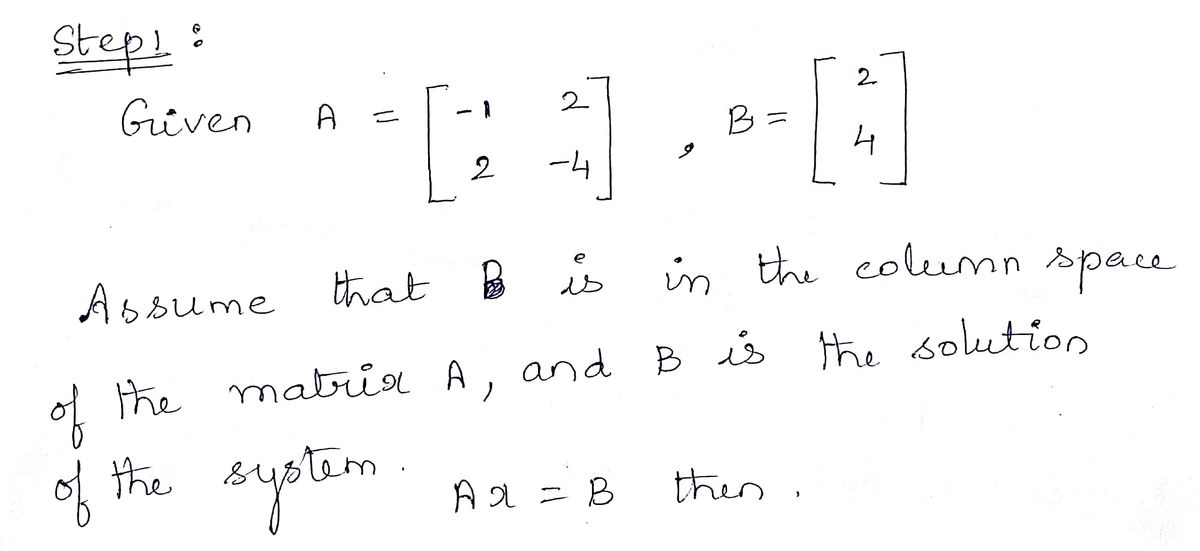 Step1 :
Given A = [ -1 2
2 -4 ] , B = [ 2
4 ]
Assume that B is in the column space
of the matrix A, and B is the solution
of the system.
Ax = B then.